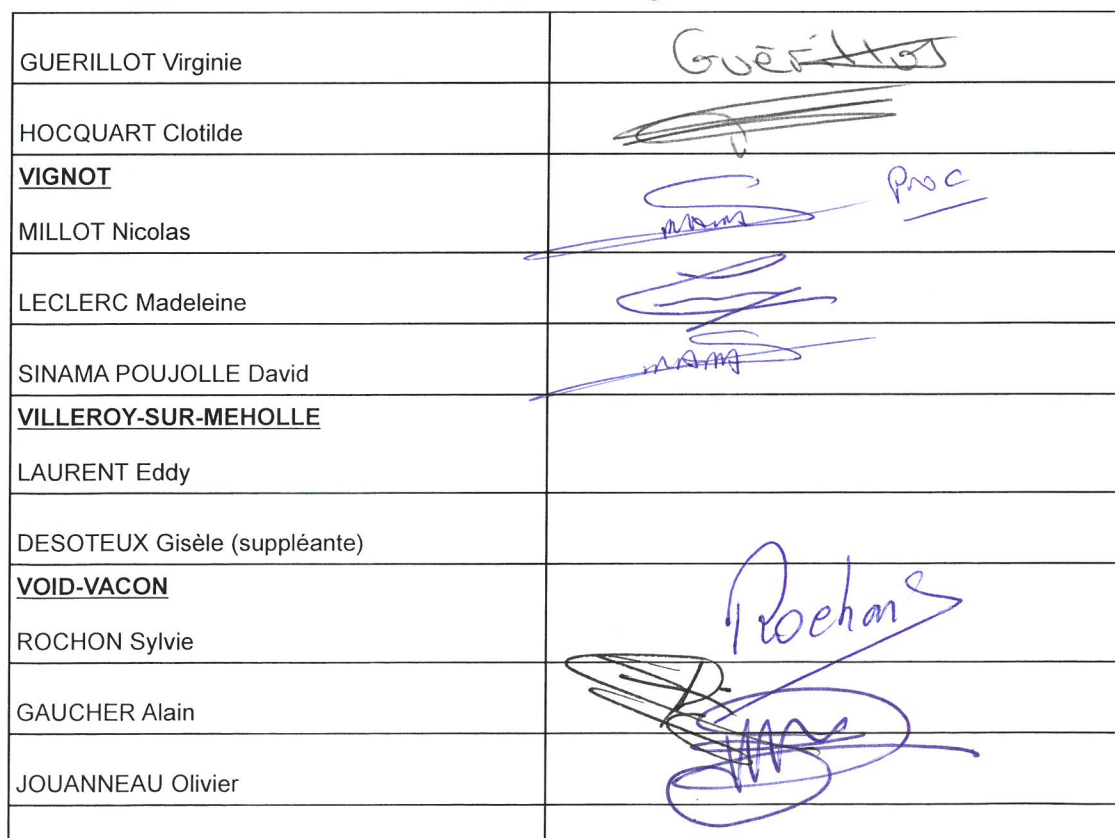 GUERILLOT Virginie Guérillot
HOCQUART Clotilde
VIGNOT
MILLOT Nicolas Proc
LECLERC Madeleine
SINAMA POUJOLLE David
VILLEROY-SUR-MEHOLLE
LAURENT Eddy
DESOTEUX Gisèle (suppléante)
VOID-VACON
ROCHON Sylvie Rochon S
GAUCHER Alain
JOUANNEAU Olivier